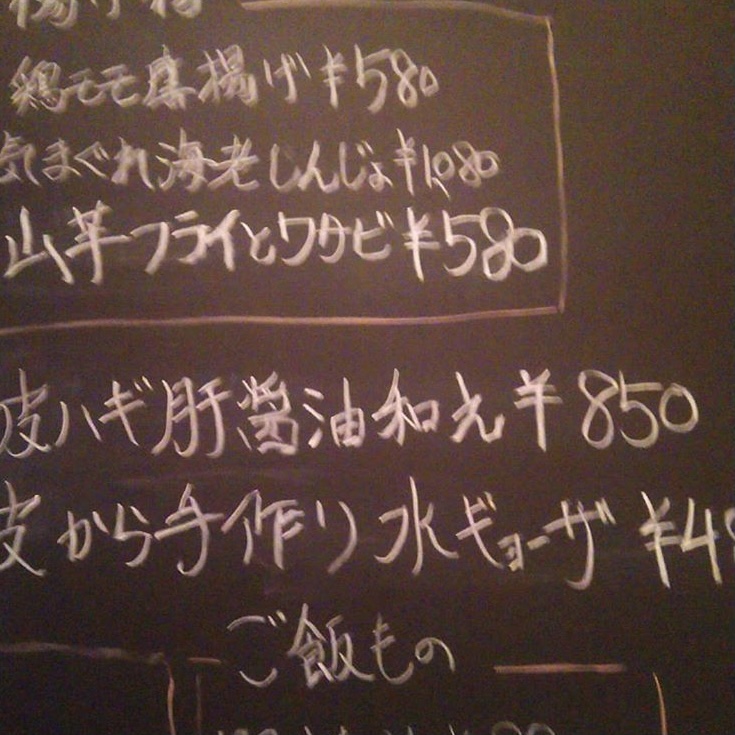 鶏モモ唐揚げ ¥580
気まぐれ海老しんじょ ¥1,080
山芋フライとワサビ ¥580
皮ハギ肝醤油和え ¥850
皮から手作り水ギョーザ ¥4
ご飯もの